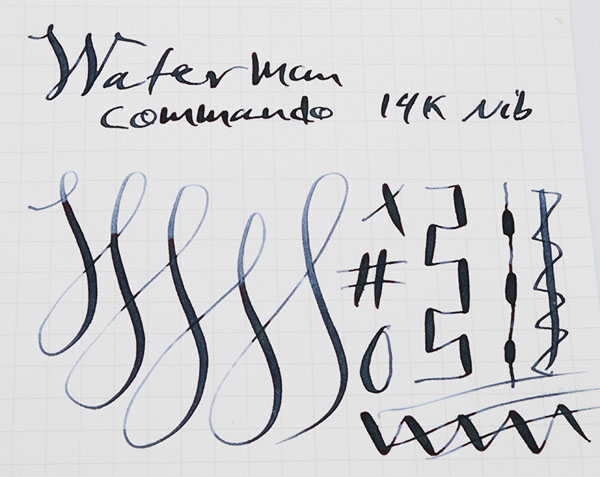 Waterman
Commando 14K Nib
X
#
0